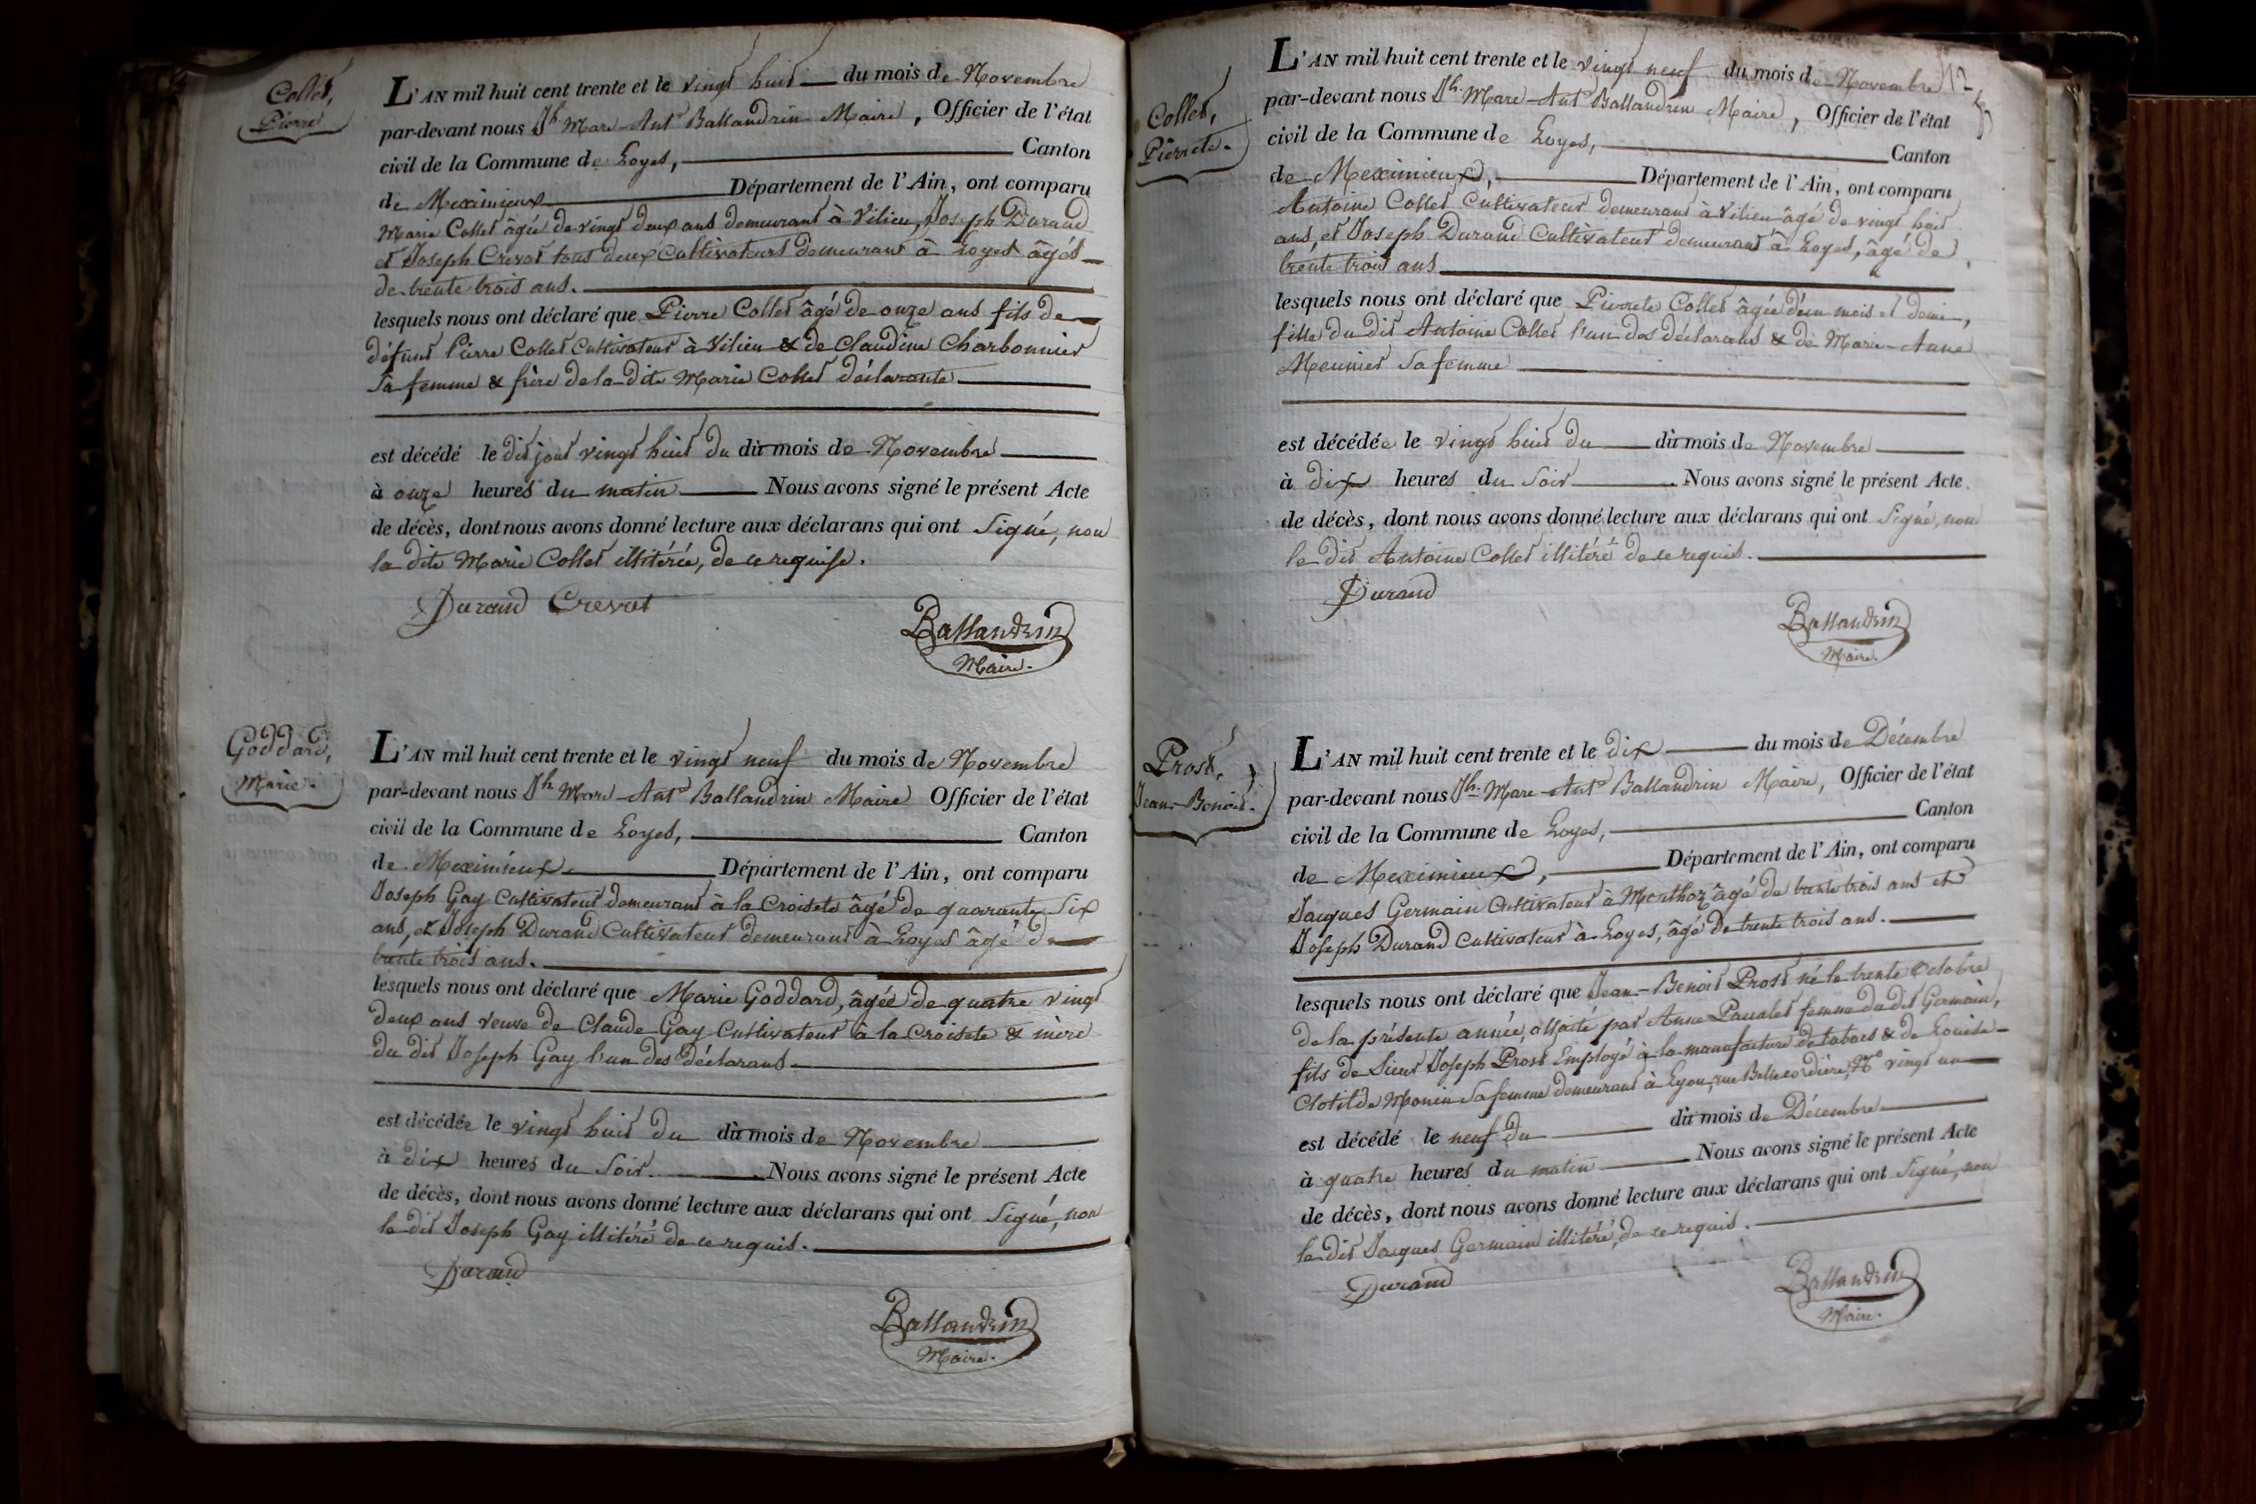 Collet,
Pierre
L'AN mil huit cent trente et le vingt huit du mois de Novembre
par-devant nous Jh Marc-Ant.e Ballandrin Maire, Officier de l'état
civil de la Commune de Loyes, Canton
de Meximieux Département de l'Ain, ont comparu
Marie Collet âgée de vingt deux ans demeurant à Vilieu, Joseph Durand
et Joseph Crevat tous deux Cultivateurs demeurant à Loyes âgés
de trente trois ans.
lesquels nous ont déclaré que Pierre Collet âgé de onze ans fils de
défunt Pierre Collet Cultivateur à Vilieu & de Claudine Charbonnier
Sa femme & frère de la dite Marie Collet déclarante
est décédé le dit jour vingt huit du dit mois de Novembre
à onze heures du matin Nous avons signé le présent Acte
de décès, dont nous avons donné lecture aux déclarans qui ont Signé, non
la dite Marie Collet illitérée, de ce requise.
Durand Crevat
Ballandrin
Maire.
Goddard,
Marie.
L'AN mil huit cent trente et le vingt neuf du mois de Novembre
par-devant nous Jh Marc-Ant.e Ballandrin Maire Officier de l'état
civil de la Commune de Loyes, Canton
de Meximieux Département de l'Ain, ont comparu
Joseph Gay Cultivateur demeurant à la Croisete âgé de quarante Six
ans, et Joseph Durand Cultivateur demeurant à Loyes âgé de
trente trois ans.
lesquels nous ont déclaré que Marie Goddard, âgée de quatre vingt
deux ans veuve de Claude Gay Cultivateur à la Croisete & mère
du dit Joseph Gay l'un des déclarans
est décédée le vingt huit du dit mois de Novembre
à dix heures du Soir. Nous avons signé le présent Acte
de décès, dont nous avons donné lecture aux déclarans qui ont Signé, non
le dit Joseph Gay illitéré de ce requis.
Durand
Ballandrin
Maire.
Collet,
Pierrete.
L'AN mil huit cent trente et le vingt neuf du mois de Novembre
par-devant nous Jh. Marc-Ant.e Ballandrin Maire, Officier de l'état
civil de la Commune de Loyes, Canton
de Meximieux, Département de l'Ain, ont comparu
Antoine Collet Cultivateur demeurant à Vilieu âgé de vingt huit
ans, et Joseph Durand Cultivateur demeurant à Loyes, âgé de
trente trois ans
lesquels nous ont déclaré que Pierrete Collet âgée d'un mois et demi,
fille du dit Antoine Collet l'un des déclarans & de Marie-Anne
Meunier Sa femme
est décédée le vingt huit du dit mois de Novembre
à dix heures du Soir Nous avons signé le présent Acte.
de décès, dont nous avons donné lecture aux déclarans qui ont Signé, non
le dit Antoine Collet illitéré de ce requis.
Durand
Ballandrin
Maire.
Prost,
Jean-Benoit.
L'AN mil huit cent trente et le dix du mois de Décembre
par-devant nous Jh. Marc-Ant.e Ballandrin Maire, Officier de l'état
civil de la Commune de Loyes, Canton
de Meximieux, Département de l'Ain, ont comparu
Jacques Germain Cultivateur à Monthoz âgé de trente trois ans et
Joseph Durand Cultivateur à Loyes, âgé de trente trois ans.
lesquels nous ont déclaré que Jean-Benoit Prost né le trente Octobre
de la présente année, allaité par Anne Paualet femme du dit Germain,
fils de Sieur Joseph Prost Employé à la manufacture de tabacs & de Louise-
Clotilde Monin Sa femme demeurant à Lyon, rue Bellecordière, No vingt un
est décédé le neuf du dit mois de Décembre
à quatre heures du matin Nous avons signé le présent Acte
de décès, dont nous avons donné lecture aux déclarans qui ont Signé, non
le dit Jacques Germain illitéré, de ce requis.
Durand
Ballandrin
Maire.